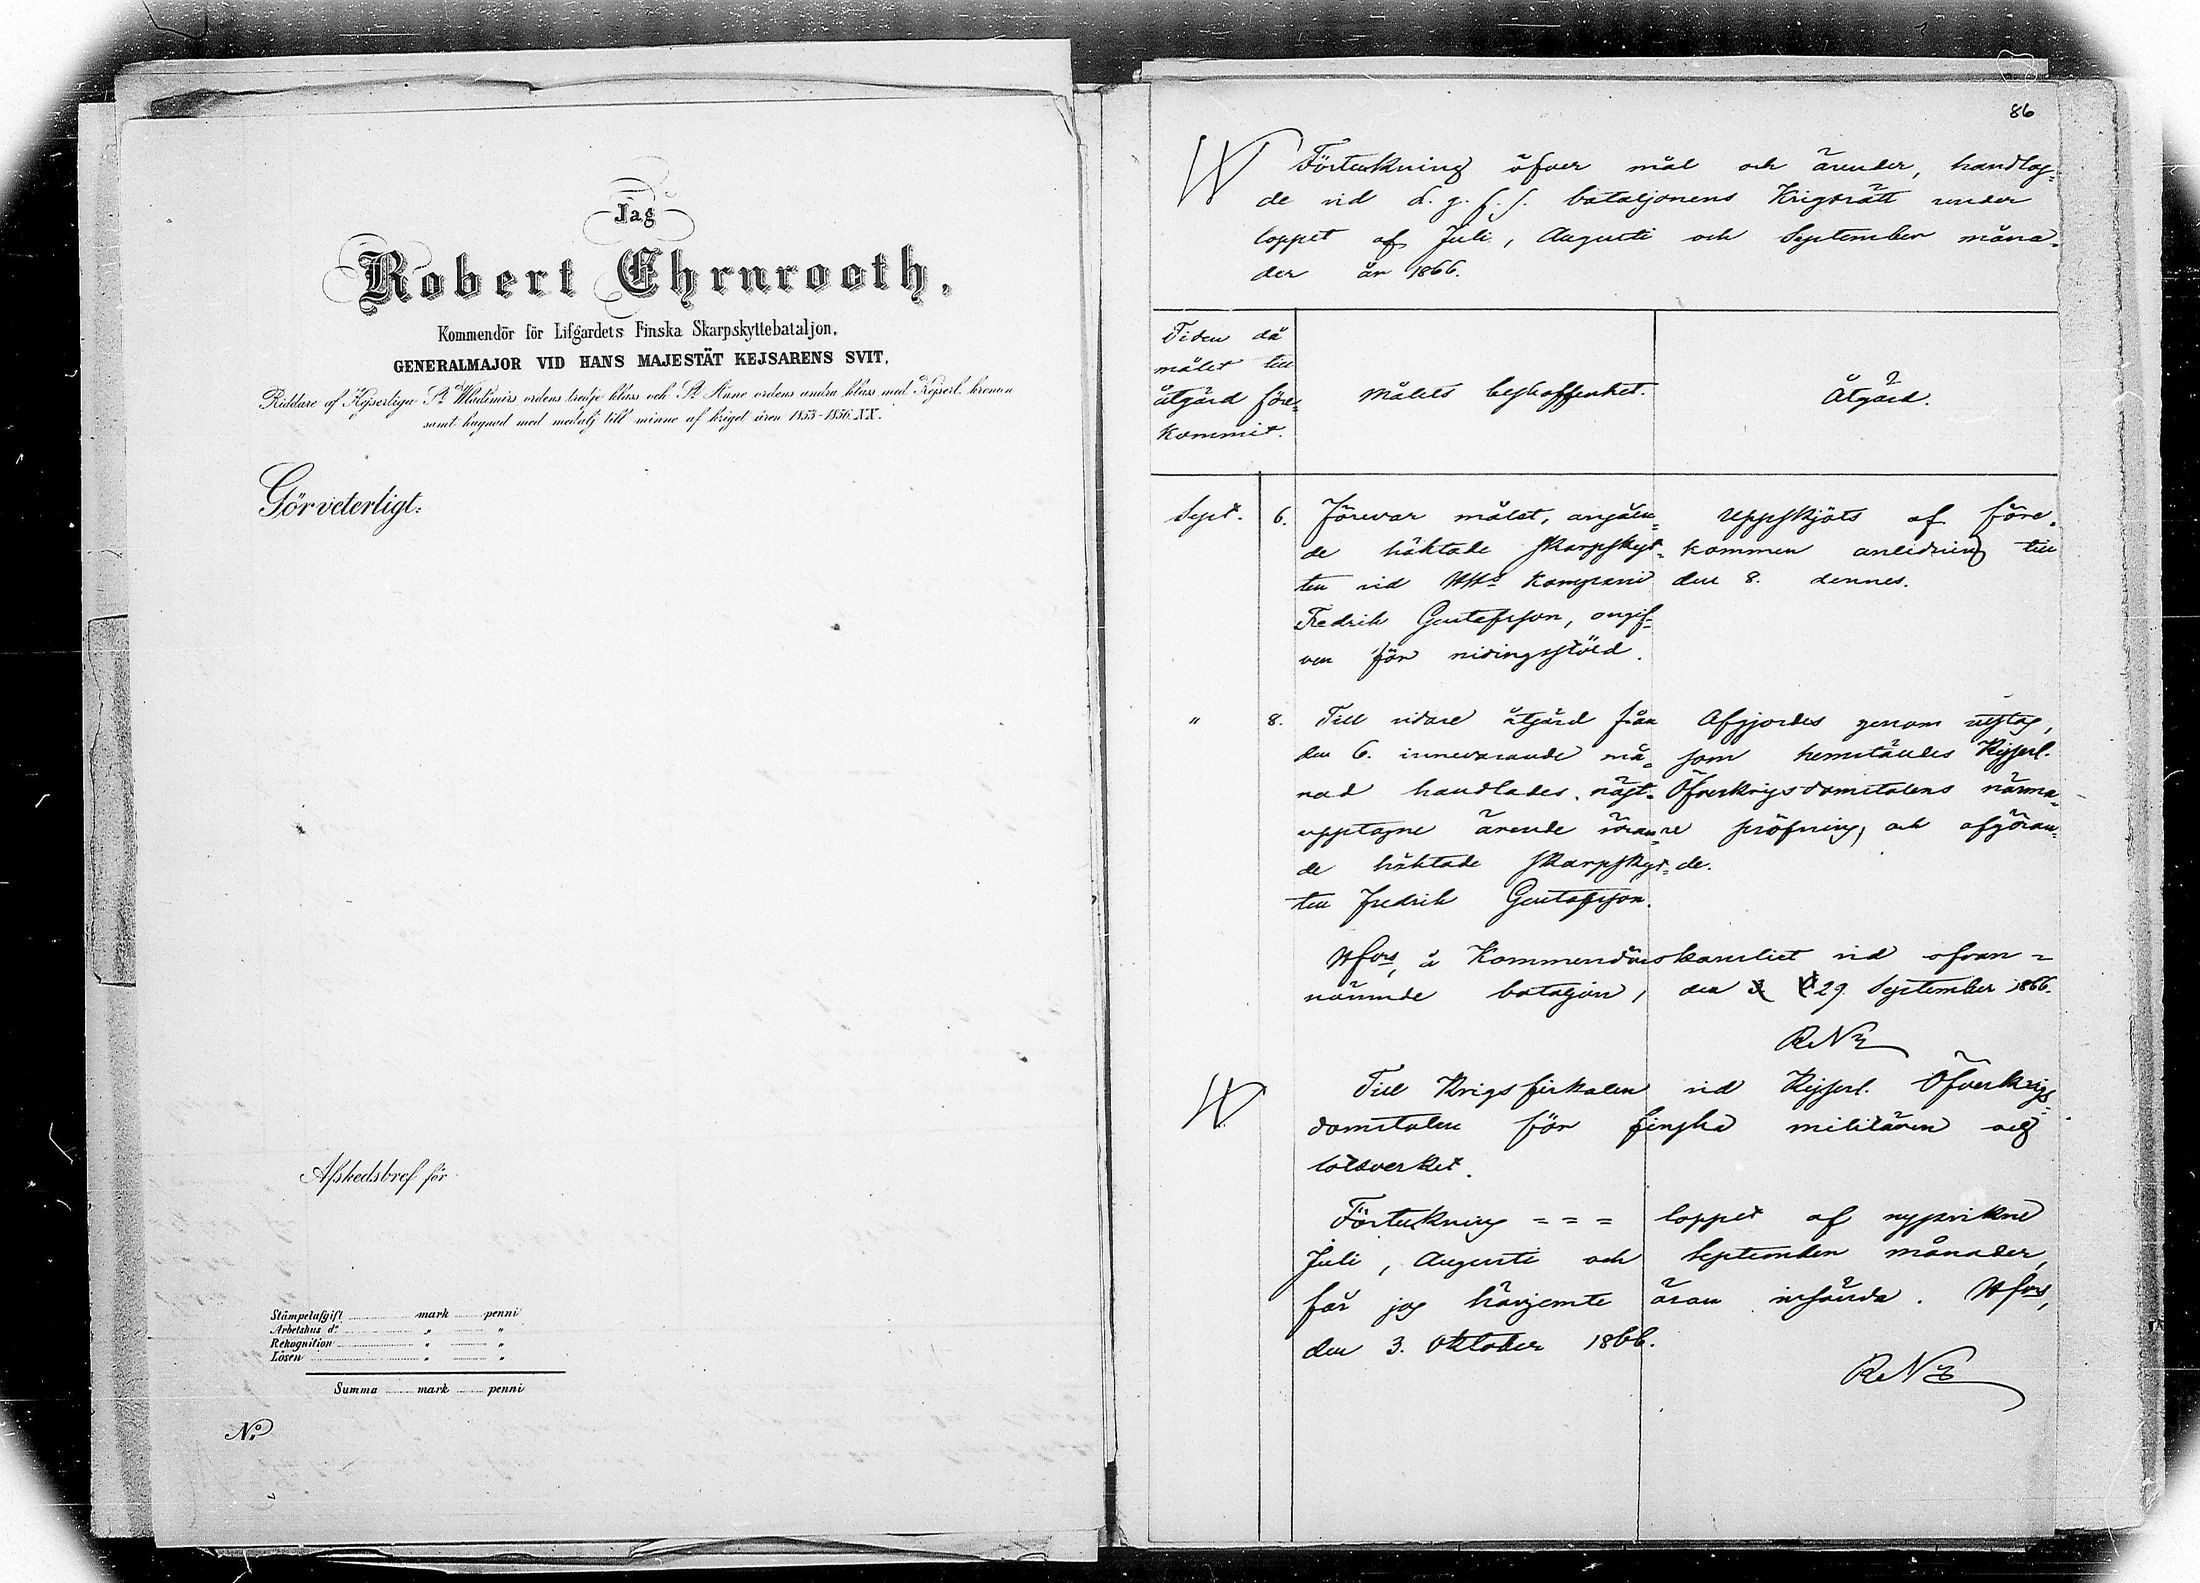 Jag
Robert Ehrnrooth,
Kommendör för Lifgardets Finska Skarpskyttebataljon,
GENERALMAJOR VID HANS MAJESTÄT KEJSARENS SVIT,
Riddare af Kejserliga S:t Wladimirs ordens tredje klass och S:t Anne ordens andra klass med Kejserl. kronan
samt hugnad med medalj till minne af kriget åren 1853-1856. XX.
Gör veterligt:
Afskedsbref för
Stämpelafgift mark penni
Arbetshus d:o " "
Rekognition " "
Lösen " "
Summa mark penni
N:o
86
Förteckning öfver mål och ärender, handlag-
de vid L. g. f. s. bataljonens Krigsrätt under
loppet af Juli, Augusti och September måna-
der år 1866.
Tiden då
målet till
åtgärd före-
kommit.
Målets beskaffenhet.
Åtgärd.
Sept. 6. Förevar målet, angåen-
de häktade skarpskyt-
ten vid Kompani
Fredrik Gustafsson, angif-
ven för nidingsstöld.
Uppskjöts af före-
kommen anledning till
den 8. dennes.
" 8. Till vidare åtgärd från
den 6. innevarande må-
nad handlades näst-
upptagne ärende röran-
de häktade skarpskyt-
ten Fredrik Gustafsson.
Afgjordes genom utslag,
som hemställes Kejserl.
Öfverkrigsdomstolens närma-
re pröfning och afgöran-
de.
Hfors, å Kommendörskansliet vid ofvan-
nämnde bataljon, den 29 September 1866.
RNE
Till Krigsfiskalen vid Kejserl. Öfverkrigs-
domstolen för finska militären och
lotsverket.
Förteckning = = = loppet af nyssvikne
Juli, Augusti och September månader,
får jag härjemte äran insända. Hfors,
den 3. Oktober 1866.
RNE